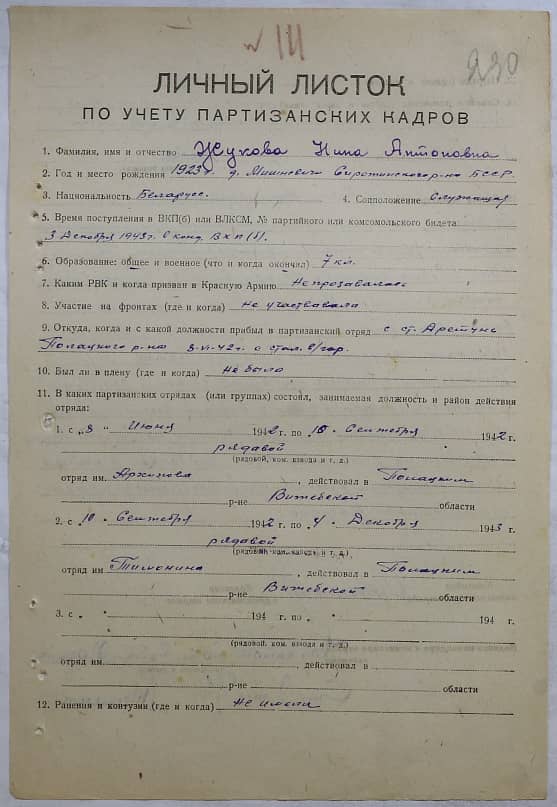 № III
230
ЛИЧНЫЙ ЛИСТОК
ПО УЧЕТУ ПАРТИЗАНСКИХ КАДРОВ
1. Фамилия, имя и отчество Жукова Нина Антоновна
2. Год и место рождения 1923 г. д. Мишневичи Сиротинского р-на БССР.
3. Национальность Беларусс. 4. Соцположение Служащая
5. Время поступления в ВКП(б) или ВЛКСМ, № партийного или комсомольского билета:
3 Декабря 1943г. в канд. ВКП(б).
6. Образование: общее и военное (что и когда окончил) 7 кл.
7. Каким РВК и когда призван в Красную Армию
8. Участие на фронтах (где и когда) не участвавала
9. Откуда, когда и с какой должности прибыл в партизанский отряд с ст.
Полацкого р-на 8-VI-42г.
10. Был ли в плену (где и когда) не была
11. В каких партизанских отрядах (или группах) состоял, занимаемая должность и район действия
отряда:
1. с „8 " Июня 1942 г. по „10 " Сентября 1942 г.
рядавой
(рядовой, ком. взвода и т. д.)
отряд им. Архипова, действовал в Полацким
р-не Витебской области
2. с „10 " Сентября 1942 г. по „4 " Декабря 1943 г.
рядавой
(рядовой, ком. взвода и т. д.)
отряд им. Тимонина, действовал в Полацким
р-не Витебской области
3. с „ " 194 г. по „ " 194 г.
(рядовой, ком. взвода и т. д.)
отряд им. , действовал в
р-не области
12. Ранения и контузии (где и когда) не имела